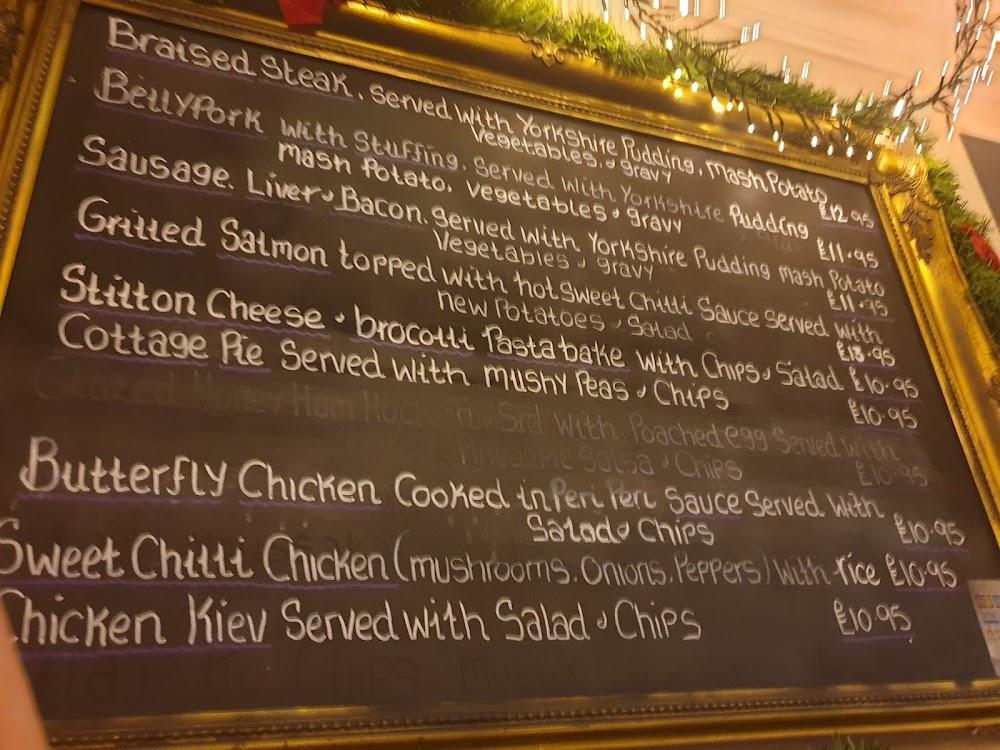 Braised Steak. Served with Yorkshire Pudding. Mash Potato
Vegetables & gravy £12.95
Belly Pork with Stuffing. Served with Yorkshire Pudding
Mash Potato. Vegetables & gravy £11.95
Sausage. Liver & Bacon. Served with Yorkshire Pudding Mash Potato
Vegetables & gravy £11.95
Grilled Salmon topped with hot Sweet Chilli Sauce Served with
New Potatoes & Salad £13.95
Stilton Cheese & brocolli Pasta bake with Chips & Salad £10.95
Cottage Pie Served with Mushy Peas & Chips £10.95
Glazed Honey Ham Hock Served with Poached egg Served with
Pineapple Salsa & Chips £10.95
Butterfly Chicken Cooked in Peri Peri Sauce Served with
Salad & Chips £10.95
Sweet Chilli Chicken (mushrooms. Onions. Peppers) with rice £10.95
Chicken Kiev Served with Salad & Chips £10.95